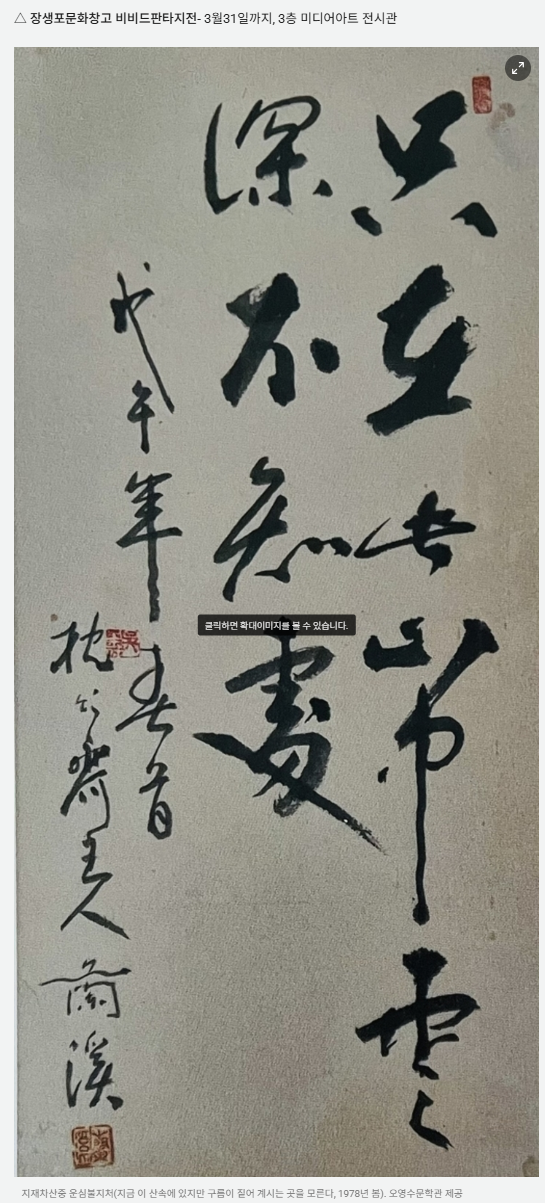 △ 장생포문화창고 비비드판타지전- 3월31일까지, 3층 미디어아트 전시관
只在此山中雲
深不知處
戊午年春首
枕齋主人蘭溪
클릭하면 확대이미지를 볼 수 있습니다.
지재차산중 운심불지처(지금 이 산속에 있지만 구름이 짙어 계시는 곳을 모른다, 1978년 봄). 오영수문학관 제공